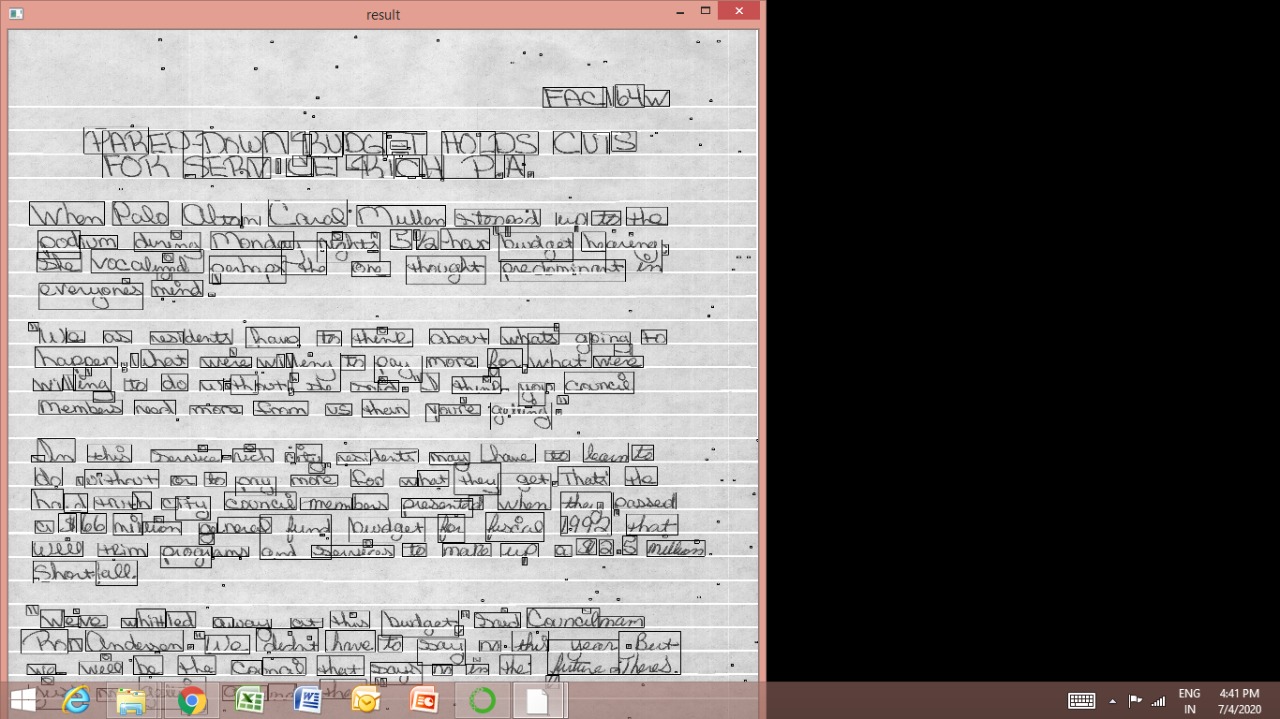 result
FAC 64W
PARED-DOWN BUDGET HOLDS CUTS
FOR SERVICE-RICH P.A.
When Palo Carol Mullen stood up to the
podium during Monday nights 5½-hour "budget hearing,
she vocalized perhaps the one thought predominant in
everyones mind.
"We as residents have to think about whats going to
happen, what were willing to pay more for, what were
willing to do without," she said. "I think you council
members need more from us than you're getting."
In this service-rich city residents may have to learn to
do without or to pay more for what they get. Thats the
hard truth city council members presented when they passed
a $66 million general fund budget for fiscal 1992 that
will trim programs and services to make up a $2.3 million
Shortfall.
"We've whittled away at this budget," said Councilman
Ron Andersen. "We didn't have to say no this year. But
we will be the council that says no in the future. There's
ENG
IN
4:41 PM
7/4/2020